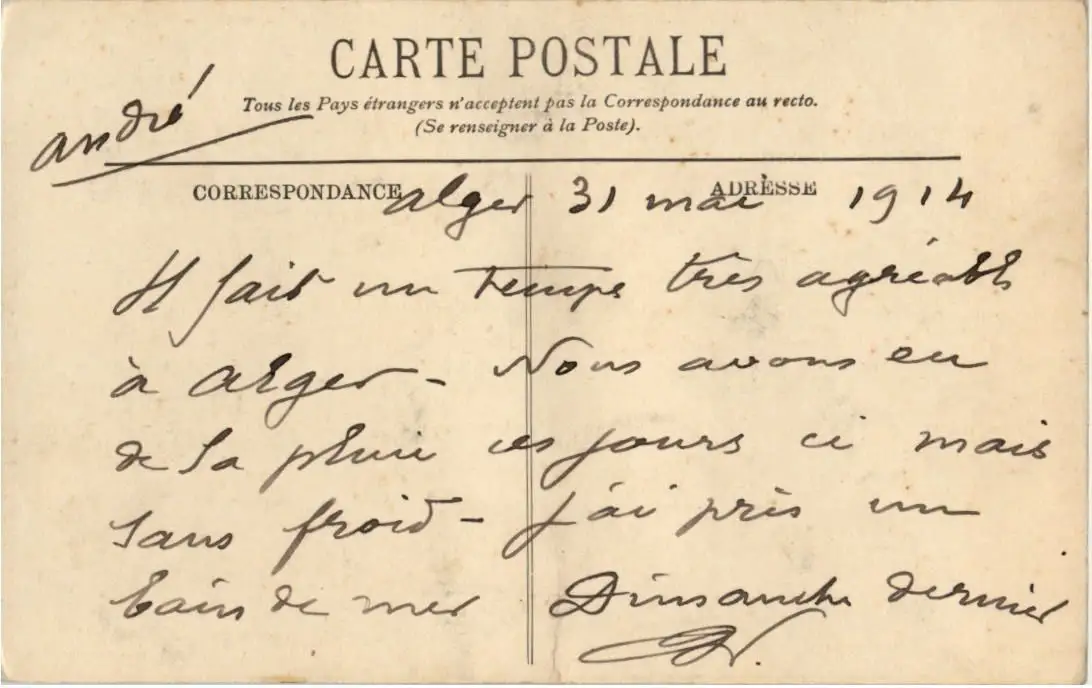 CARTE POSTALE
Tous les Pays étrangers n'acceptent pas la Correspondance au recto.
(Se renseigner à la Poste).
andré
CORRESPONDANCE
ADRESSE
alger 31 mai 1914
Il fait un temps très agréable
à alger - Nous avons eu
de la pluie ces jours ci mais
sans froid - j'ai près un
bain de mer Dimanche dernier